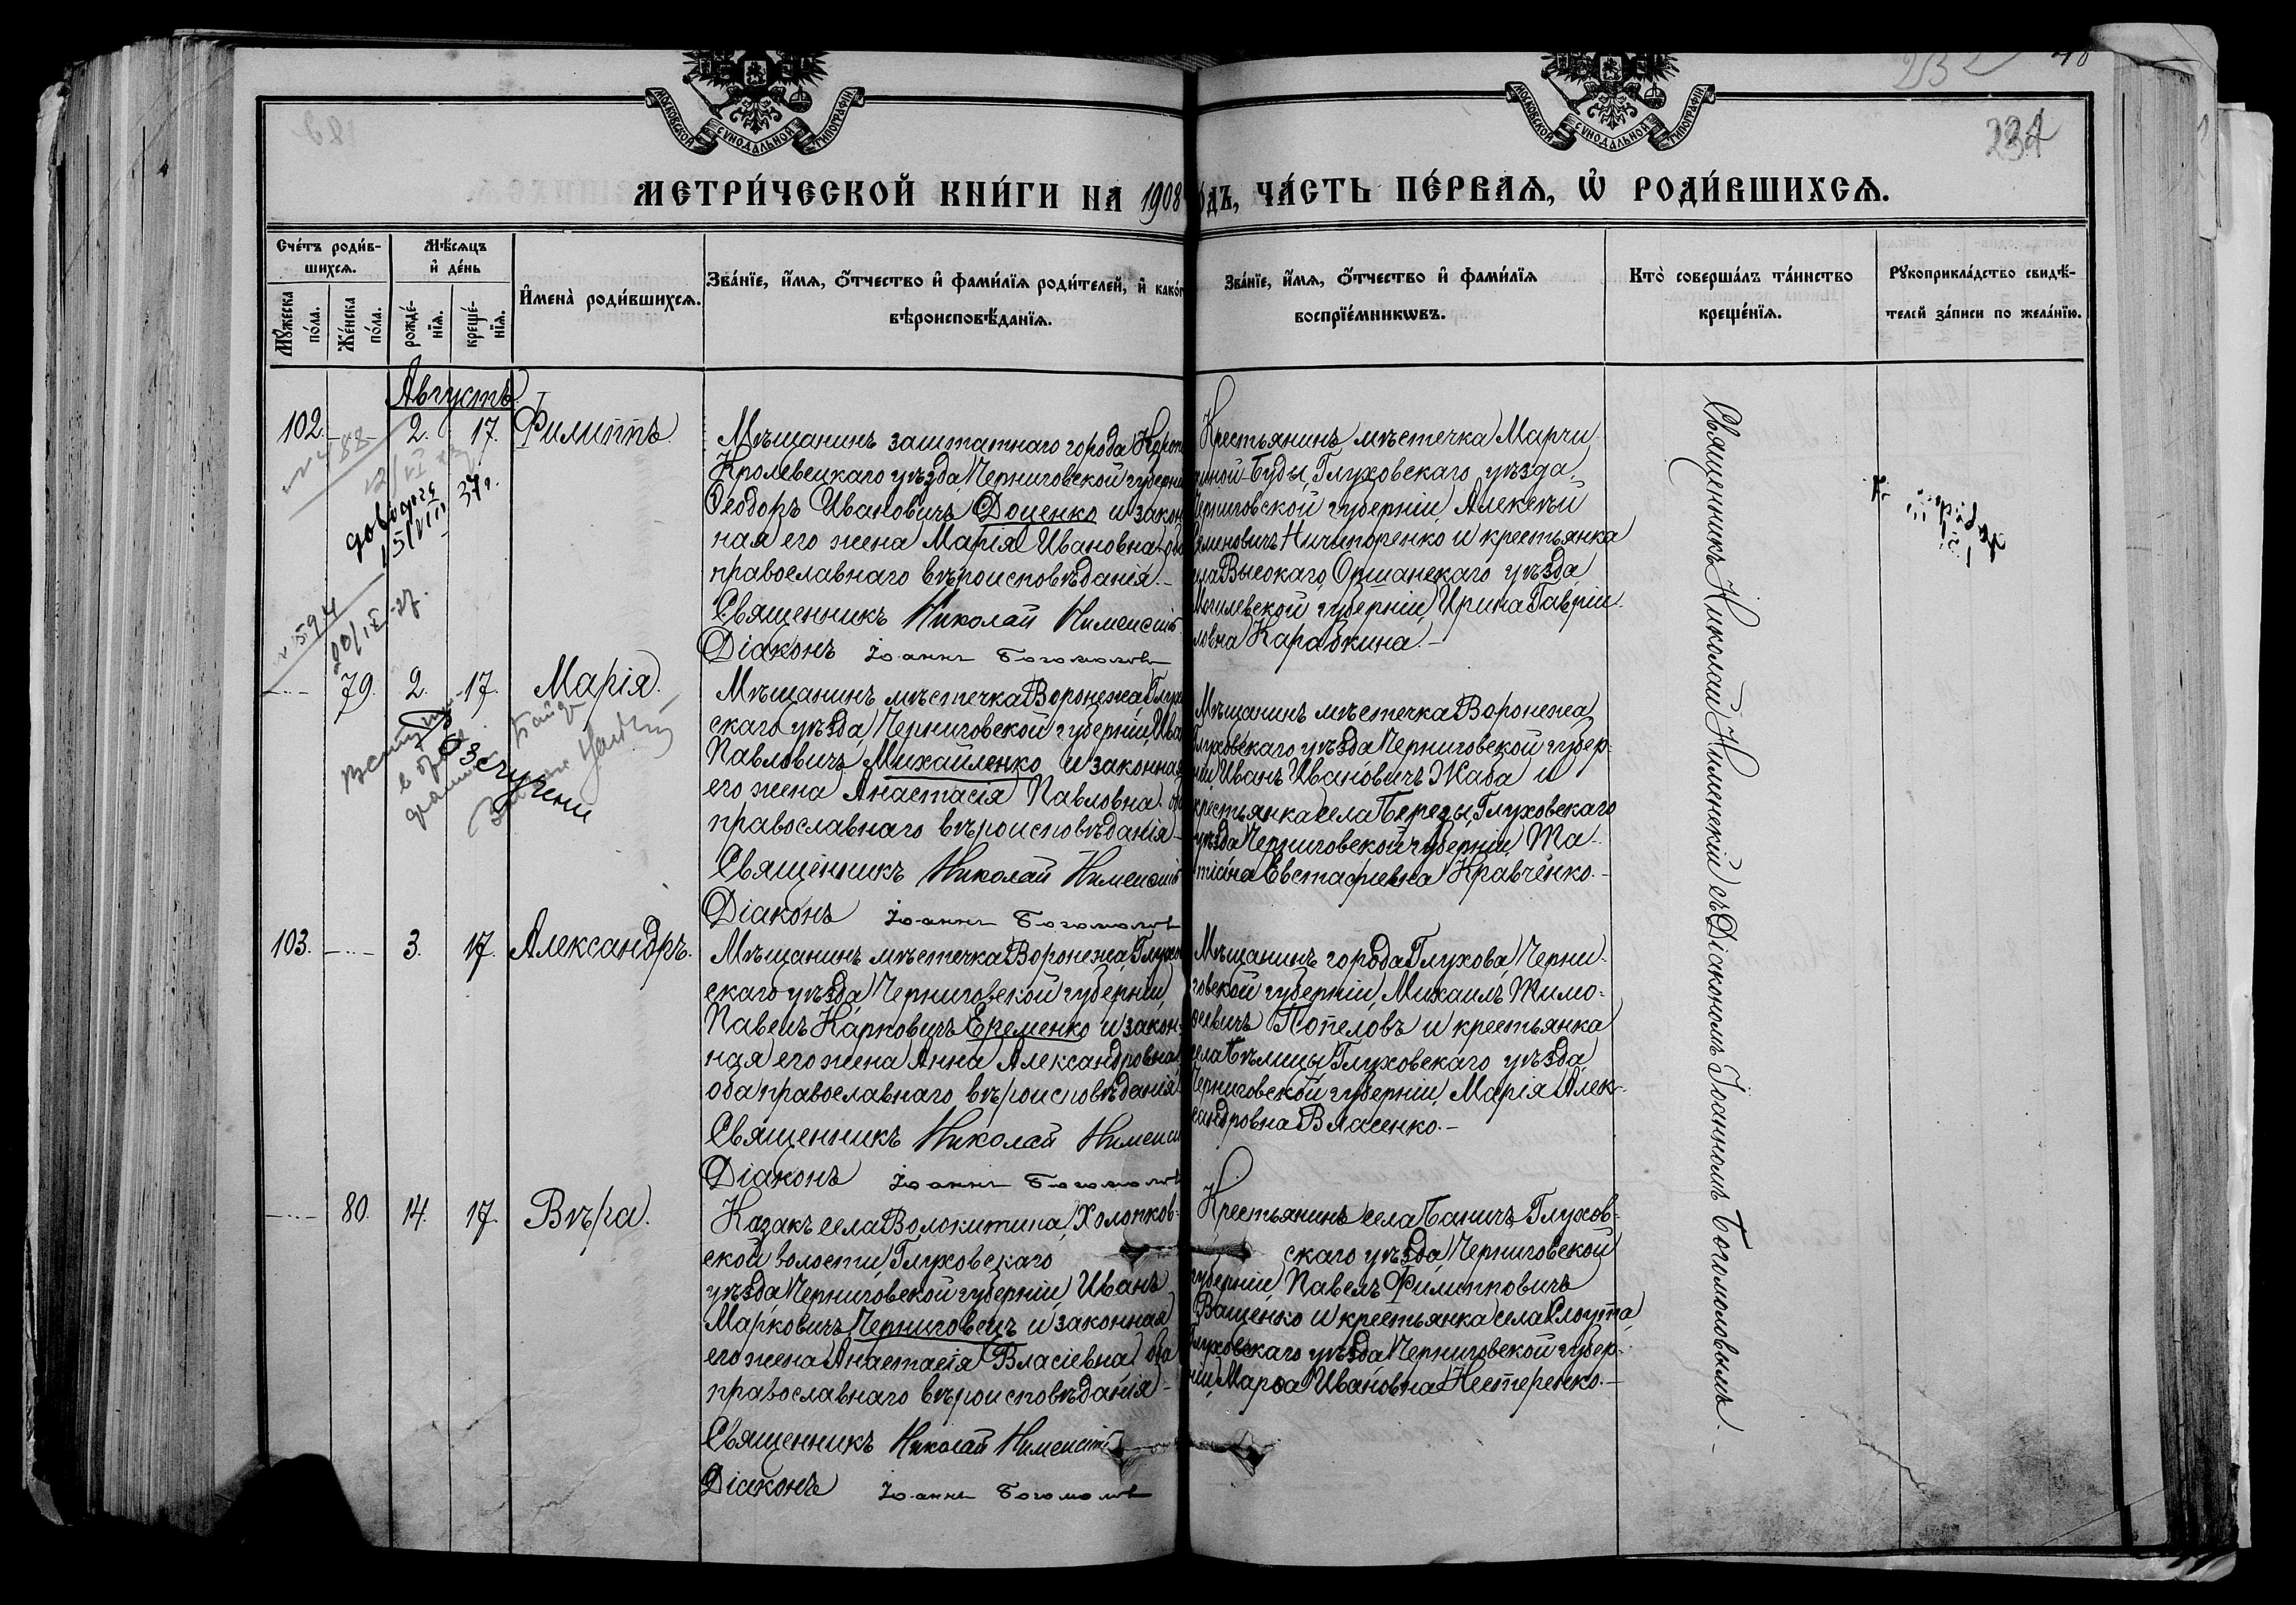 МОСКОВСКОЙ СѴНОДАЛЬНОЙ ТИПОГРАФІИ
МОСКОВСКОЙ СѴНОДАЛЬНОЙ ТИПОГРАФІИ
234
МЕТРИ́ЧЕСКОЙ КНИ́ГИ НА 1908 ОДЪ, ЧА́СТЬ ПЕ́РВАѦ, Ѡ҆ РОДИ́ВШИХСѦ.
Сче́тъ роди́в-
шихсѧ.
Мꙋ́жеска по́ла.
Же́нска по́ла.
Мѣ́сѧцъ
и҆ де́нь
рожде́-нїѧ.
креще́-нїѧ.
И҆мена̀ роди́вшихсѧ.
Зва́нїе, и҆́мѧ, ѻ҆́тчество и҆ фами́лїѧ роди́телей, и҆ како́г
вѣроисповѣ́данїѧ.
Зва́нїе, и҆́мѧ, ѻ҆́тчество и҆ фами́лїѧ
воспрїе́мникѡвъ.
Кто̀ соверша́лъ та́инство
креще́нїѧ.
Рꙋкоприкла́дство свидѣ́-
телей за́писи по жела́нїю.
Августъ
102. 2. 17. Филиппъ.
Мѣщанинъ заштатнаго города Короп
Кролевецкаго уѣзда, Черниговской губерн
Ѳеодоръ Ивановичъ Доценко и закон
ная его жена Марія Ивановна, оба
православнаго вѣроисповѣданія.—
Священникъ Николай
Діаконъ Іоаннъ Богомолов
Крестьянинъ мѣстечка Марчи
хиной-Буды, Глуховскаго уѣзда,
Черниговской губерніи, Алексѣй
Ничипоренко и крестьянка
села Высокаго, Оршанскаго уѣзда
Могилевской губерніи, Ирина Гаврiи-
ловна Карабкина.—
довидка
15/VIII 37 г.
№ 594
20/IX-27.
79. 2. 17. Марія.
Мѣщанинъ мѣстечка Воронежа, Глухо
скаго уѣзда, Черниговской губерніи, Ива
Павловичъ Михайленко и законная
его жена Анастасія Павловна, оба
православнаго вѣроисповѣданія—
Священникъ Николай
Діаконъ Іоаннъ Богомолов
Мѣщанинъ мѣстечка Воронежа
Глуховскаго уѣзда Черниговской губер-
ніи Иванъ Ивановичъ Жаба и
крестьянка села Березы, Глуховскаго
уѣзда Черниговской губерніи, Та-
тіана Евстафіевна Кравченко.—
103. 3. 17. Александръ.
Мѣщанинъ мѣстечка Воронежа, Глухо
скаго уѣзда, Черниговской губерніи,
Павелъ Карповичъ Еременко и закон-
ная его жена Анна Александровна,
оба православнаго вѣроисповѣданія
Священникъ Николай
Діаконъ Іоаннъ Богомолов
Мѣщанинъ города Глухова, Черни-
говской губерніи, Михаилъ Тимо-
ѳеевичъ Попеловъ и крестьянка
села Бѣлицы Глуховскаго уѣзда,
Черниговской губерніи, Марія Алек-
сандровна Власенко.—
80. 14. 17. Вѣра.
Казакъ села Волокитина, Холопков-
ской волости, Глуховскаго
уѣзда Черниговской губерніи, Иванъ
Марковичъ Черниговецъ и законная
его жена Анастасія Власіевна, оба
православнаго вѣроисповѣданія—
Священникъ Николай
Діаконъ Іоаннъ Богомолов
Крестьянинъ села Баничъ, Глухов-
скаго уѣзда, Черниговской
губерніи, Павелъ Филипповичъ
Ващенко и крестьянка села Слоута,
Глуховскаго уѣзда Черниговской губер-
ніи, Марѳа Ивановна Нестеренко.—
Священникъ Николай Нименскій съ Діакономъ Іоанномъ Богомоловымъ.—